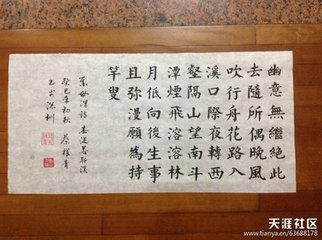 幽意無繼絕此
去隨所偶晚風
吹行舟花路入
溪口際夜轉西
壑隔山望南斗
潭煙飛溶溶林
月低向後生事
且弥漫願為持
竿叟
綦毋潛詩 春泛若耶溪
癸巳年初秋 蔡
深圳
天涯社区
http://www.tianya.cn/63688178